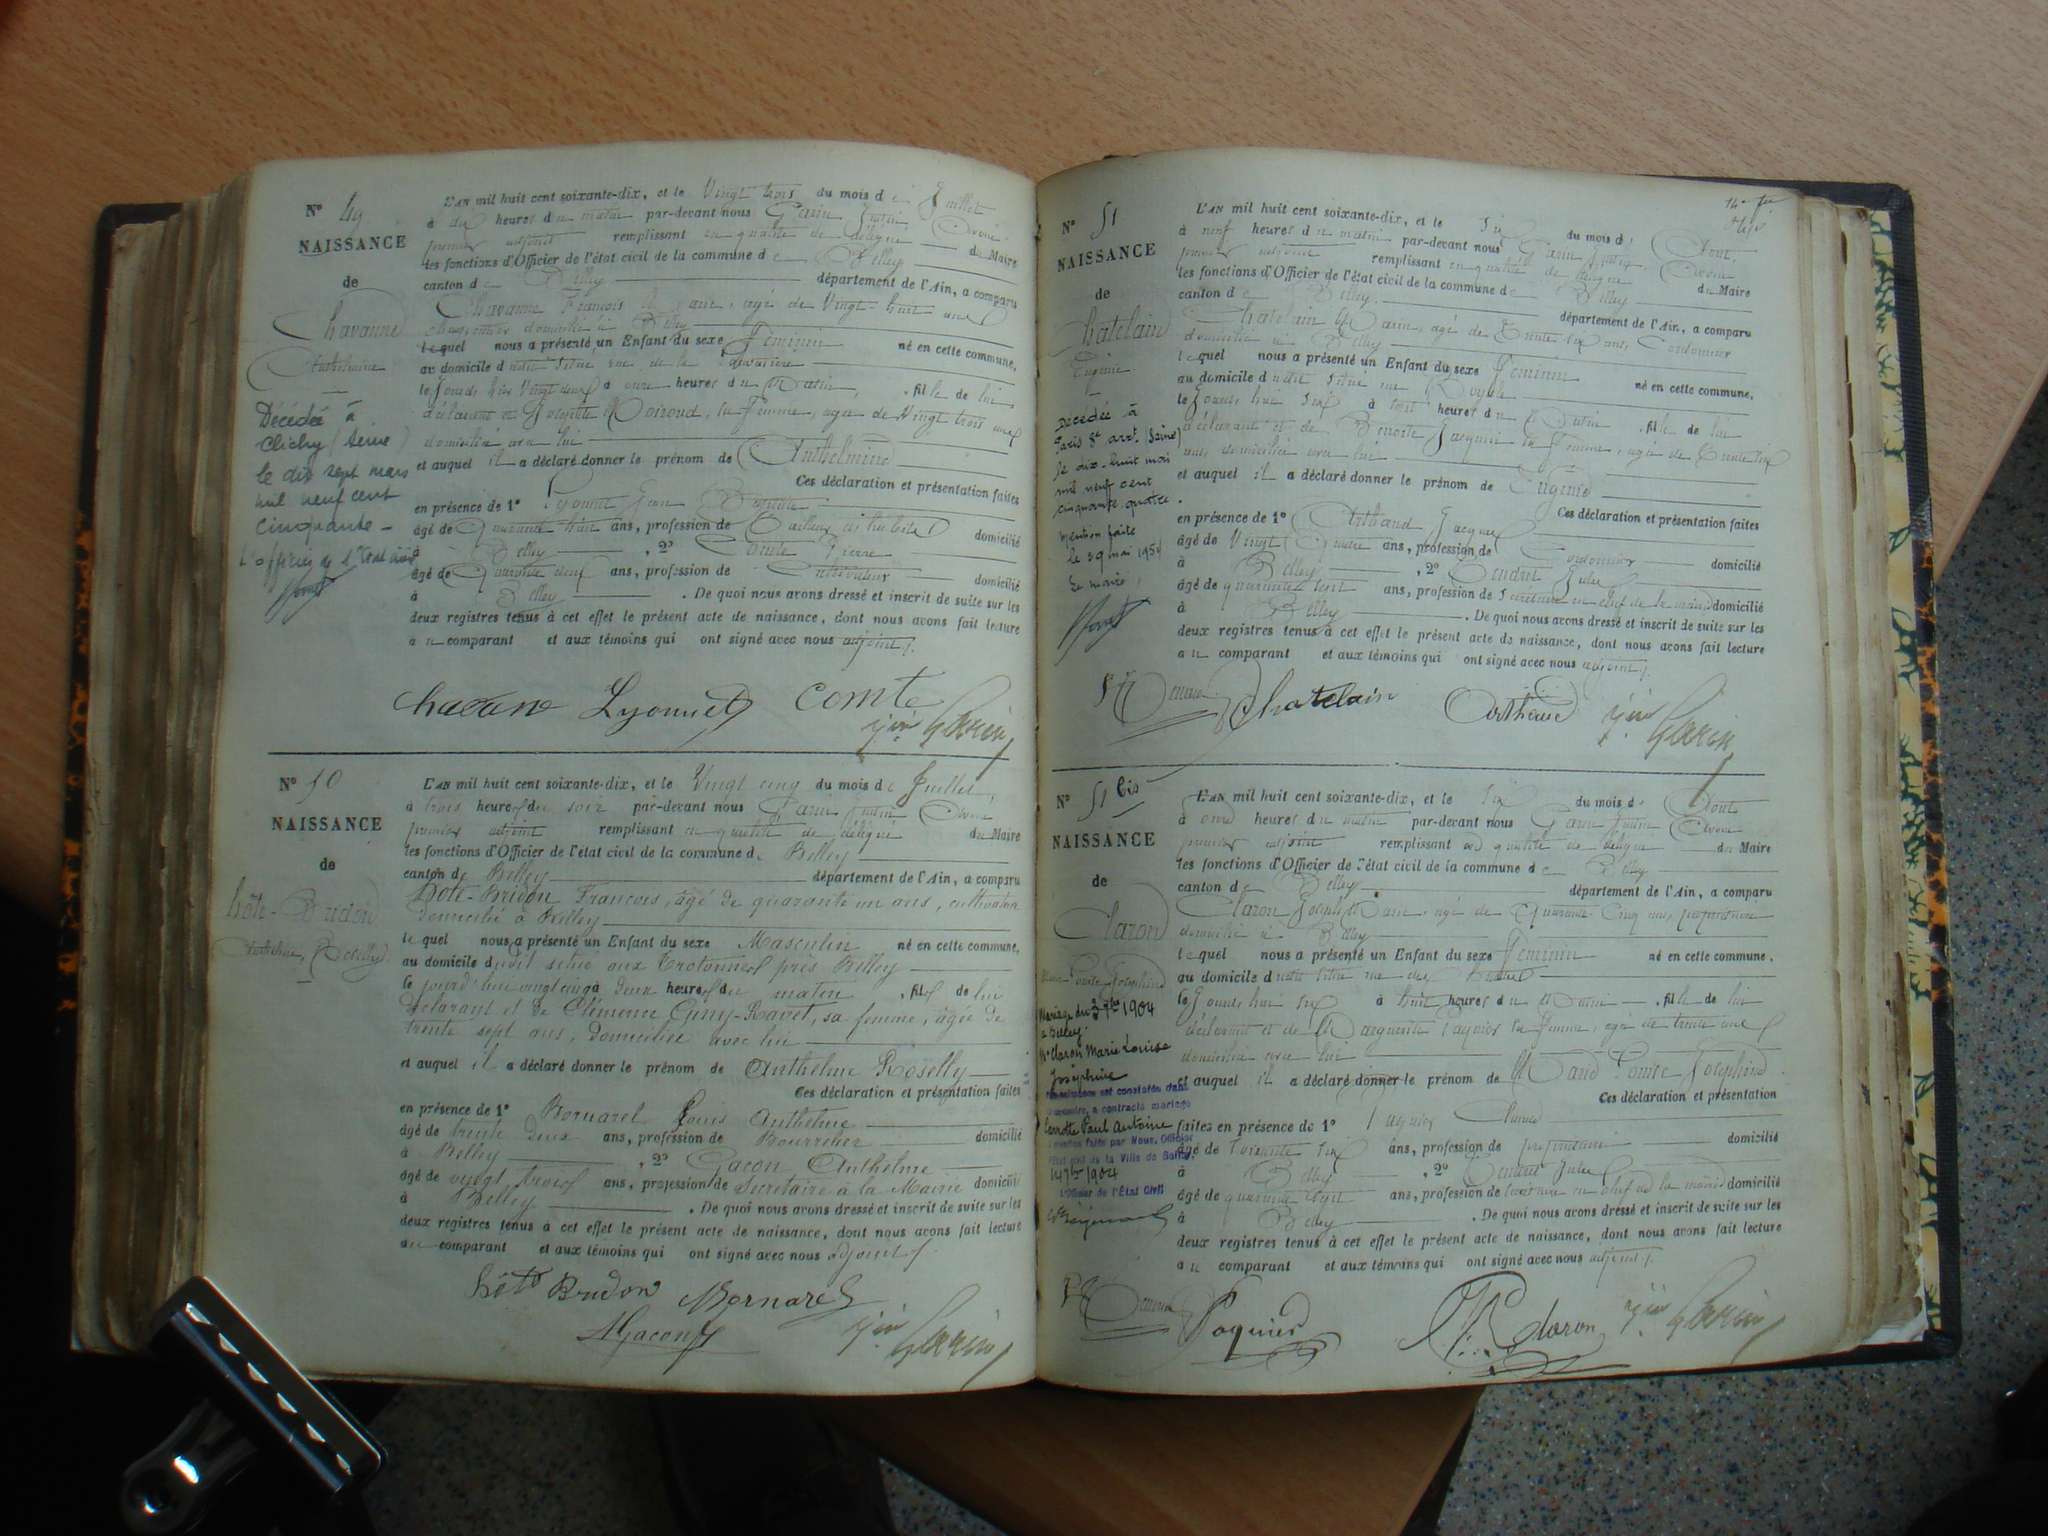 N° 49
NAISSANCE
de
Chavanne
Anthelmine
Décédée à
Clichy (Seine)
le dix sept mars
mil neuf cent
cinquante -
L'officier de l'Etat civil
L'AN mil huit cent soixante-dix, et le Vingt trois du mois de Juillet
à dix heures du matin par-devant nous Garin Justin Avoué
premier adjoint remplissant en qualité de délégué du Maire
les fonctions d'Officier de l'état civil de la commune de Belley
canton de Belley département de l'Ain, a comparu
Chavanne François Marie, agé de Vingt-huit ans
domicilié à Belley
lequel nous a présenté un Enfant du sexe Féminin né en cette commune,
au domicile dudit situé rue de la
le Jourd'hui vingt deux à onze heures du Matin, fille de lui
déclarant et Josephte sa femme, agée de Vingt trois ans
domiciliée avec lui
et auquel il a déclaré donner le prénom de Anthelmine
Ces déclaration et présentation faites
en présence de 1° Lyonnet Jean Baptiste
âgé de Quarante huit ans, profession de Tailleur d'habits domicilié
à Belley, 2° Comte Pierre
âgé de Quarante neuf ans, profession de Cultivateur domicilié
à Belley. De quoi nous avons dressé et inscrit de suite sur les
deux registres tenus à cet effet le présent acte de naissance, dont nous avons fait lecture
au comparant et aux témoins qui ont signé avec nous adjoint.
Chavane Lyonnet Comte
Jin Garin
N° 50
NAISSANCE
de
hôte-Brudon
Anthelme, Roselly
L'AN mil huit cent soixante-dix, et le Vingt cinq du mois de Juillet,
à trois heures du soir par-devant nous Garin Justin Avoué
premier adjoint remplissant en qualité de délégué du Maire
les fonctions d'Officier de l'état civil de la commune de Belley
canton de Belley département de l'Ain, a comparu
hôte-Brudon François, âgé de quarante un ans, cultivateur
domicilié à Belley
lequel nous a présenté un Enfant du sexe Masculin né en cette commune,
au domicile dudit situé aux près Belley
le jourd'hui vingt cinq à deux heures du matin, fils de lui
déclarant et de Clémence Cuny-Ravet, sa femme, âgée de
trente sept ans, domiciliée avec lui
et auquel il a déclaré donner le prénom de Anthelme Roselly
Ces déclaration et présentation faites
en présence de 1° Bornarel Louis Anthelme
âgé de trente deux ans, profession de Bourrelier domicilié
à Belley, 2° Gacon Anthelme
âgé de vingt trois ans, profession de Secrétaire à la Mairie domicilié
à Belley. De quoi nous avons dressé et inscrit de suite sur les
deux registres tenus à cet effet le présent acte de naissance, dont nous avons fait lecture
au comparant et aux témoins qui ont signé avec nous adjoint.
hôte Brudon Bornarel
AGacon Jin Garin
N° 51
NAISSANCE
de
Chatelain
Eugénie
Décédée à
Paris 8e arrt. (Seine)
le dix-huit mai
mil neuf cent
cinquante quatre.
Mention faite
le 29 mai 1954
Le maire,
L'AN mil huit cent soixante-dix, et le Six du mois d' Aout,
à neuf heures du matin par-devant nous Garin Justin Avoué
premier adjoint remplissant en qualité de délégué du Maire
les fonctions d'Officier de l'état civil de la commune de Belley
canton de Belley département de l'Ain, a comparu
Chatelain Marin, agé de Trente six ans, Cordonnier
domicilié à Belley
lequel nous a présenté un Enfant du sexe Féminin né en cette commune,
au domicile dudit situé rue Royale
le Jourd'hui Six à sept heures du Matin, fille de lui
déclarant et de Benoite Jacquin sa Femme, agée de Trente six
ans, domiciliée avec lui
et auquel il a déclaré donner le prénom de Eugénie
Ces déclaration et présentation faites
en présence de 1° Arthaud Jacques
âgé de Vingt Quatre ans, profession de Cordonnier domicilié
à Belley, 2° Tendret Jules
âgé de quarante sept ans, profession de Secrétaire en chef de la mairie domicilié
à Belley. De quoi nous avons dressé et inscrit de suite sur les
deux registres tenus à cet effet le présent acte de naissance, dont nous avons fait lecture
au comparant et aux témoins qui ont signé avec nous adjoint.
Chatelain Arthaud Jin Garin
N° 51 bis
NAISSANCE
de
Claron
Marie Louise Joséphine
Mariage du 3 7bre 1904
à Belley.
Claron Marie Louise
Joséphine
dont la naissance est constatée dans
a contracté mariage
Paul Antoine
Mention faite par Nous, Officier
de l'état civil de la Ville de Belley,
14 7bre 1904
L'Officier de l'État Civil
L'AN mil huit cent soixante-dix, et le Six du mois d' Aout
à onze heures du matin par-devant nous Garin Justin Avoué
premier adjoint remplissant en qualité de délégué du Maire
les fonctions d'Officier de l'état civil de la commune de Belley
canton de Belley département de l'Ain, a comparu
Claron Joseph Marie, agé de Quarante Cinq ans, propriétaire
domicilié à Belley
lequel nous a présenté un Enfant du sexe Féminin né en cette commune,
au domicile dudit situé rue des
le Jourd'hui Six à huit heures du Matin, fille de lui
déclarant et de Marguerite Paquier sa Femme, agée de trente ans
domiciliée avec lui
et auquel il a déclaré donner le prénom de Marie Louise Joséphine
Ces déclaration et présentation
faites en présence de 1° Paquier
âgé de soixante six ans, profession de propriétaire domicilié
à Belley, 2° Tendret Jules
âgé de quarante sept ans, profession de secrétaire en chef de la mairie domicilié
à Belley. De quoi nous avons dressé et inscrit de suite sur les
deux registres tenus à cet effet le présent acte de naissance, dont nous avons fait lecture
au comparant et aux témoins qui ont signé avec nous adjoint.
Paquier Claron Jin Garin